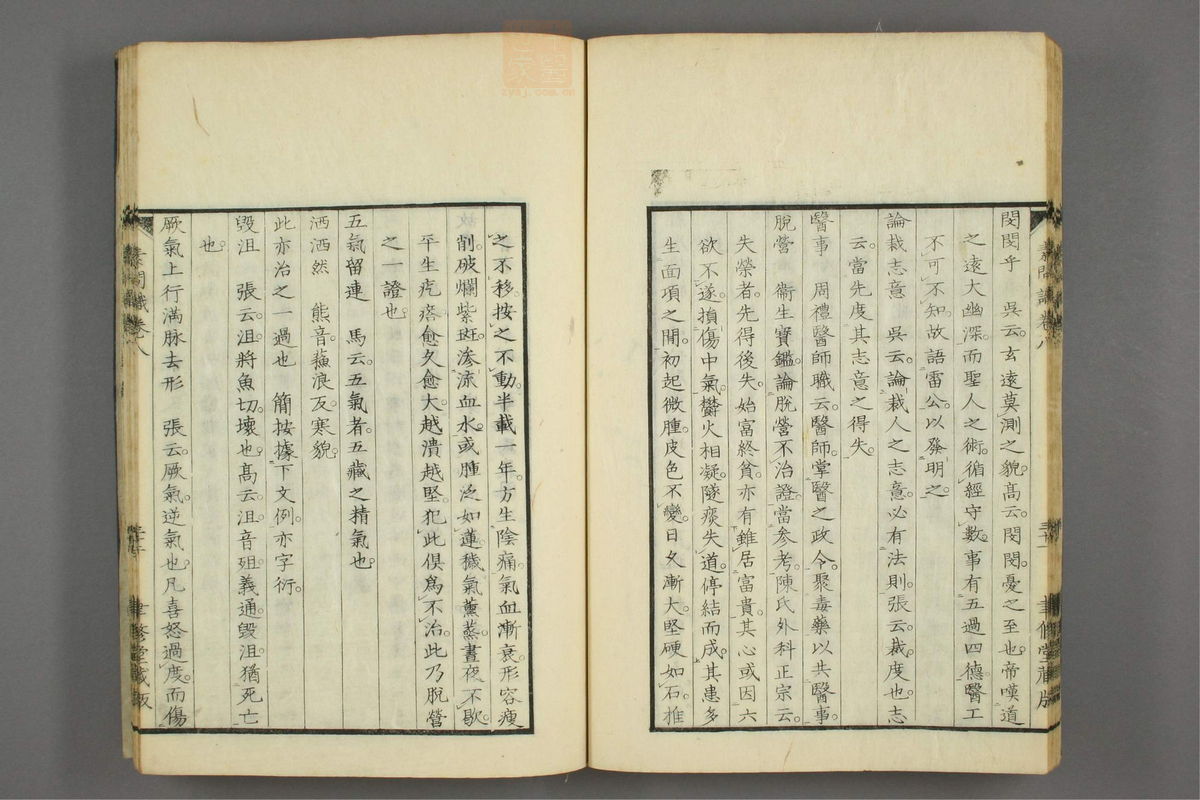 閔閔乎　吳云。玄遠莫測之貌。高云。閔閔憂之至也。帝嘆道
之遠大幽深。而聖人之術。循經守數。事有五過四德。醫工
不可不知。故語雷公。以發明之。
論裁志意　吳云。論裁人之志意。必有法則。張云。裁。度也。志
云。當先度其志意之得失。
醫事　周禮醫師職云。醫師。掌醫之政令。聚毒藥以共醫事。
脫營　衞生寶鑑。論脫營不治證。當參考。陳氏外科正宗云。
失榮者。先得後失。始富終貧。亦有雖居富貴。其心或因六
欲不遂。損傷中氣。鬱火相凝。隧痰失道。停結而成。其患多
生面項之間。初起微腫。皮色不變。日久漸大。堅硬如石。推
之不移。按之不動。半載一年。方生陰痛。氣血漸衰。形容瘦
削。破爛紫斑。滲流血水。或腫泛如蓮。穢氣薰蒸。晝夜不歇。
平生疙瘩。愈久愈大。越潰越堅。犯此俱爲不治。此乃脫營
之一證也。
五氣留連　馬云。五氣者。五藏之精氣也。
洒洒然　熊音。蘓浪反。寒貌。
此亦治之一過也　簡按。據下文例。亦字衍。
毀沮　張云。沮。將魚切。壞也。高云。沮音殂。義通。毀沮。猶死亡
也。
厥氣上行滿脉去形　張云。厥氣。逆氣也。凡喜怒過度。而傷
素問識卷八
聿修堂藏版